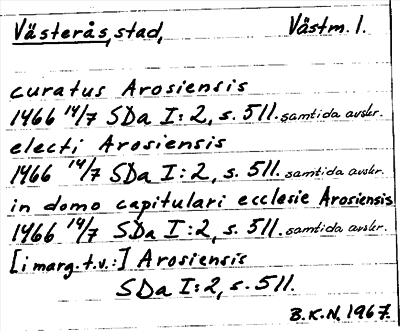 Västerås, stad, Västm. l.
curatus Arosiensis
1466 14/7 SDa I:2, s. 511. samtida avskr.
electi Arosiensis
1466 14/7 SDa I:2, s. 511. samtida avskr.
in domo capitulari ecclesie Arosiensis
1466 14/7 SDa I:2, s. 511. samtida avskr.
[i marg. t.v.:] Arosiensis
SDa I:2, s. 511.
B.K.N. 1967.